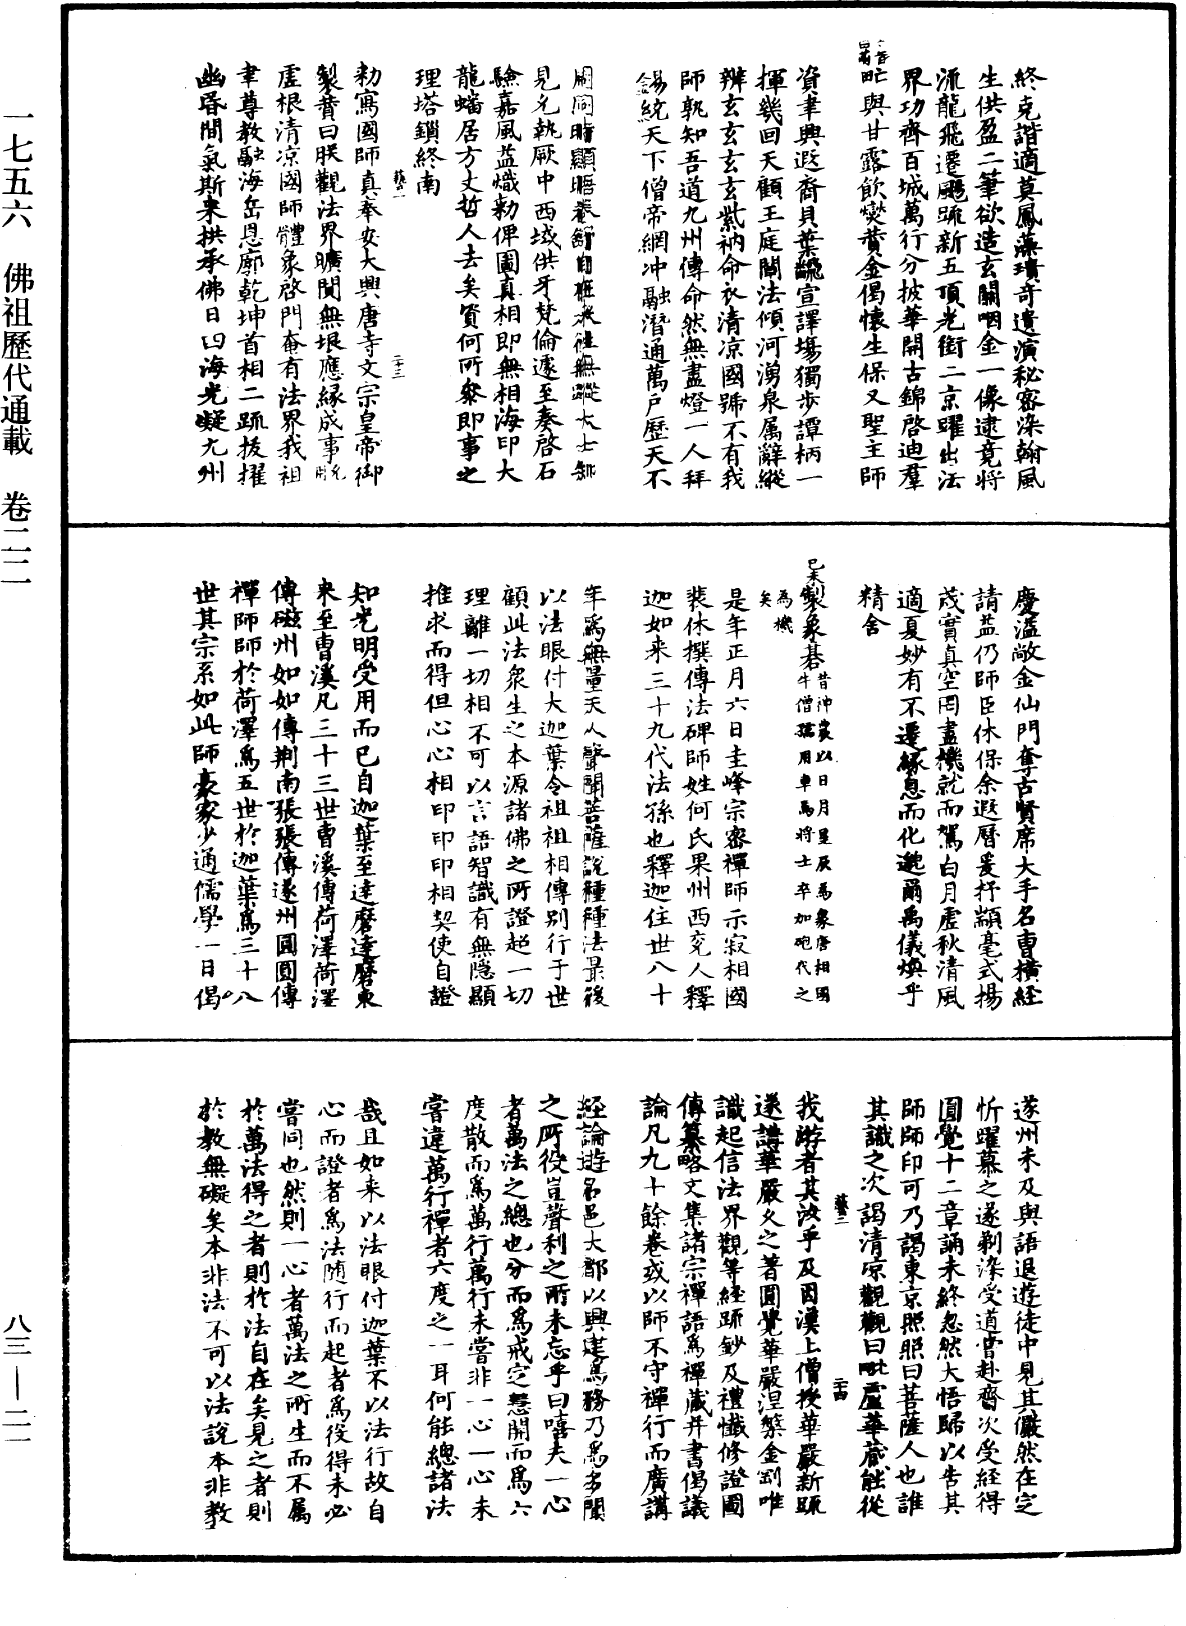 一七五六　佛祖歷代通載　卷二二
八三—二一
終克諧適莫鳳藻瓌奇遺演秘密染翰風
生供盈二筆欲造玄關咽金一像逮竟將
流龍飛遷颺疏新五頂光銜二京躍出法
界功齊百城萬行分披華開古錦啓迪羣
甿與甘露飲爕贊金偈懷生保乂聖主師
資聿興遐裔貝葉飜宣譯塲獨步譚柄一
揮幾回天顧王庭闡法傾河湧泉属辭縱
辨玄玄玄玄紫衲命衣清凉國號不有我
師孰知吾道九州傳命然無盡燈一人拜
錫統天下僧帝網冲融潛通萬戶歷天不
周同時顯晤卷舒自在來往無蹤大士知
見允執厥中西域供牙梵倫遽至奏啓石
驗嘉風益熾勑俾圖真相即無相海印大
龍蟠居方丈哲人去矣資何所參即事之
理塔鎖終南
藝一
二十三
勑寫國師真奉安大興唐寺文宗皇帝御
製賛曰朕觀法界曠閴無垠應縁成事允用
虛根清凉國師體象啓門奄有法界我祖
聿尊教融海岳恩廓乾坤首相二疏拔擢
幽昏間氣斯来拱承佛日四海光凝九州
慶溢敞金仙門奪古賢席大手名曹横経
請益仍師臣休保余遐曆爰抒顓毫式揚
茂實真空罔盡機就而駕白月虛秋清風
適夏妙有不遷縁息而化邈爾禹儀煥乎
精舍
己未製象碁昔神農以日月星辰爲象唐相國
牛僧孺用車馬將士卒加砲代之
爲機
矣
是年正月六日圭峰宗密禪師示寂相國
裴休撰傳法碑師姓何氏果州西充人釋
迦如来三十九代法孫也釋迦住世八十
年爲無量天人聲聞菩薩說種種法最後
以法眼付大迦葉令祖祖相傳别行于世
顧此法衆生之本源諸佛之所證超一切
理離一切相不可以言語智識有無隠顯
推求而得但心心相印印印相契使自證
知光明受用而已自迦葉至達磨達磨東
来至曹溪凡三十三世曹溪傳荷澤荷澤
傳磁州如如傳荆南張張傳遂州圓圓傳
禪師師於荷澤爲五世於迦葉爲三十八
世其宗系如此師豪家少通儒學一日偈
遂州未及與語退遊徒中見其儼然在定
忻躍慕之遂剃染受道嘗赴齋次受経得
圓覺十二章誦未終忽然大悟歸以告其
師師印可乃謁東京照照曰菩薩人也誰
其識之次謁清凉觀觀曰毗盧華蔵能從
我游者其汝乎及因漢上僧授華嚴新疏
藝二
二十四
遂講華嚴久之著圓覺華嚴涅槃金剛唯
識起信法界觀等経疏鈔及禮懺修證圖
傳纂略文集諸宗禪語爲禪蔵并書偈議
論凡九十餘卷或以師不守禪行而廣講
経論遊名邑大都以興建爲務乃爲多聞
之所役豈聲利之所未忘乎曰嘻夫一心
者萬法之總也分而爲戒定慧開而爲六
度散而爲萬行萬行未嘗非一心一心未
嘗違萬行禪者六度之一耳何能總諸法
哉且如来以法眼付迦葉不以法行故自
心而證者爲法随行而起者爲役得未必
嘗同也然則一心者萬法之所生而不属
於萬法得之者則於法自在矣見之者則
於教無礙矣本非法不可以法說本非教